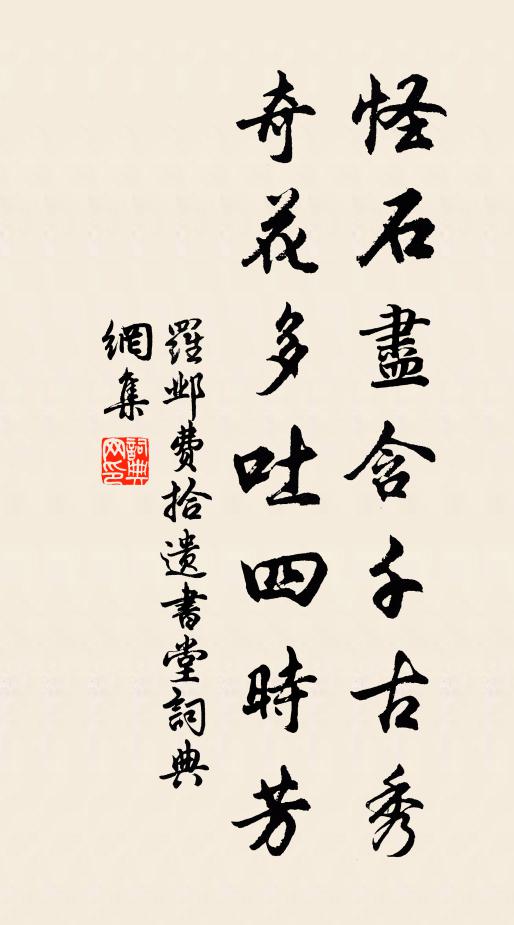 怪石盡含千古秀
奇花多吐四時芳
羅鄴費拾遺書堂詞典
網集
詞典
网印